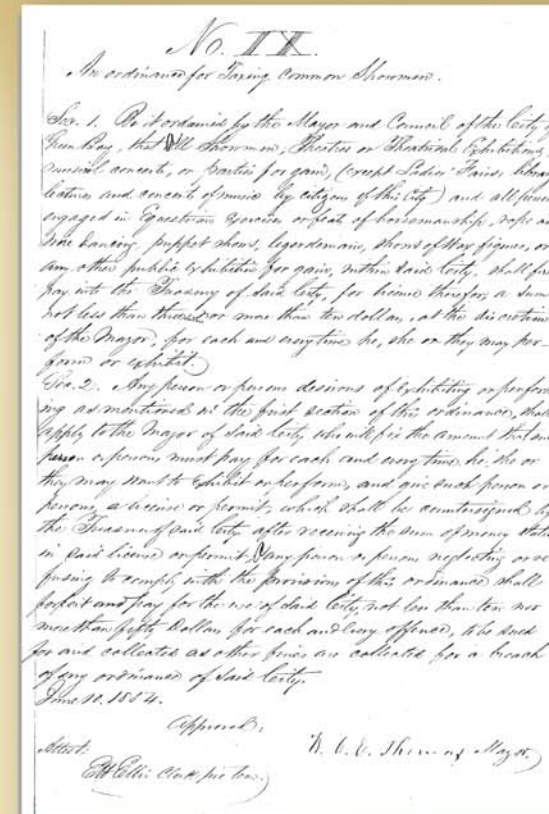 No. IX.
An ordinance for Taxing Common Showmen.
Sec. 1. Be it ordained by the Mayor and Council of the City
Green Bay, that All Showmen, Theatres or Theatrical Exhibitions,
musical concerts, or parties for gain, (except Ladies' Fairs,
lectures and concerts of music by citizens of this City) and all
engaged in Equestrian Exercises or feats of horsemanship, rope
wire dancing, puppet shows, legerdemain, shows of Wax figures, or
any other public Exhibition for gain, within said City, shall
pay into the Treasury of said City, for license therefor, a sum
not less than three nor more than ten dollars, at the discretion
of the Mayor, for each and every time he, she or they may per-
form or exhibit.
Sec. 2. Any person or persons desirous of Exhibiting or
ing as mentioned in the first section of this ordinance,
apply to the Mayor of said City who will fix the amount that
person or persons must pay for each and every time he, she or
they may want to Exhibit or perform, and give such person or
persons, a license or permit, which shall be countersigned
the Treasurer of said City after receiving the sum of money
in said license or permit, & any person or persons neglecting or re
fusing to comply with the provisions of this ordinance shall
forfeit and pay for the use of said City, not less than ten nor
more than fifty Dollars for each and every offence, to be sued
for and collected as other fines are collected for a breach
of any ordinance of said City.
June 10. 1854.
Approved,
Mayor.
Attest:
Ellis Clerk pro tem.